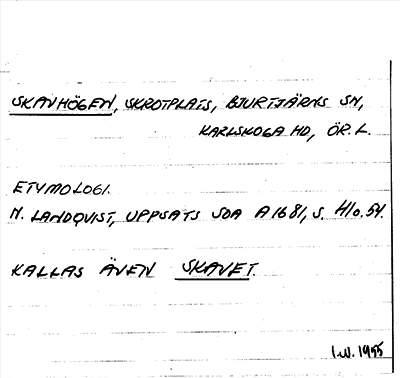 SKAVHÖGEN, SKROTPLATS, BJURTJÄRNS SN,
KARLSKOGA HD, ÖR. L.
ETYMOLOGI.
N. LANDQVIST, UPPSATS SOA A 1681, S.
KALLAS ÄVEN SKAVET.
1955